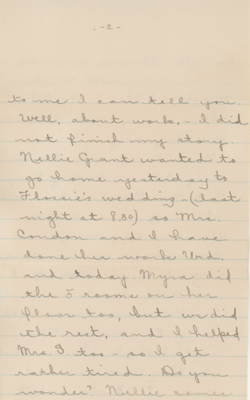 -2-
to me I can tell you.
Well, about work, - I did
not finish my story.
Nellie Grant wanted to
go home yesterday to
Flossie's wedding - (last
night at 8.30) so Mrs.
Condon and I have
done her work Wed.
and today Myra did
the 5 rooms on her
floor too, but we did
the rest, and I helped
Mrs. G. too - so I got
rather tired. Do you
wonder? Nellie comes